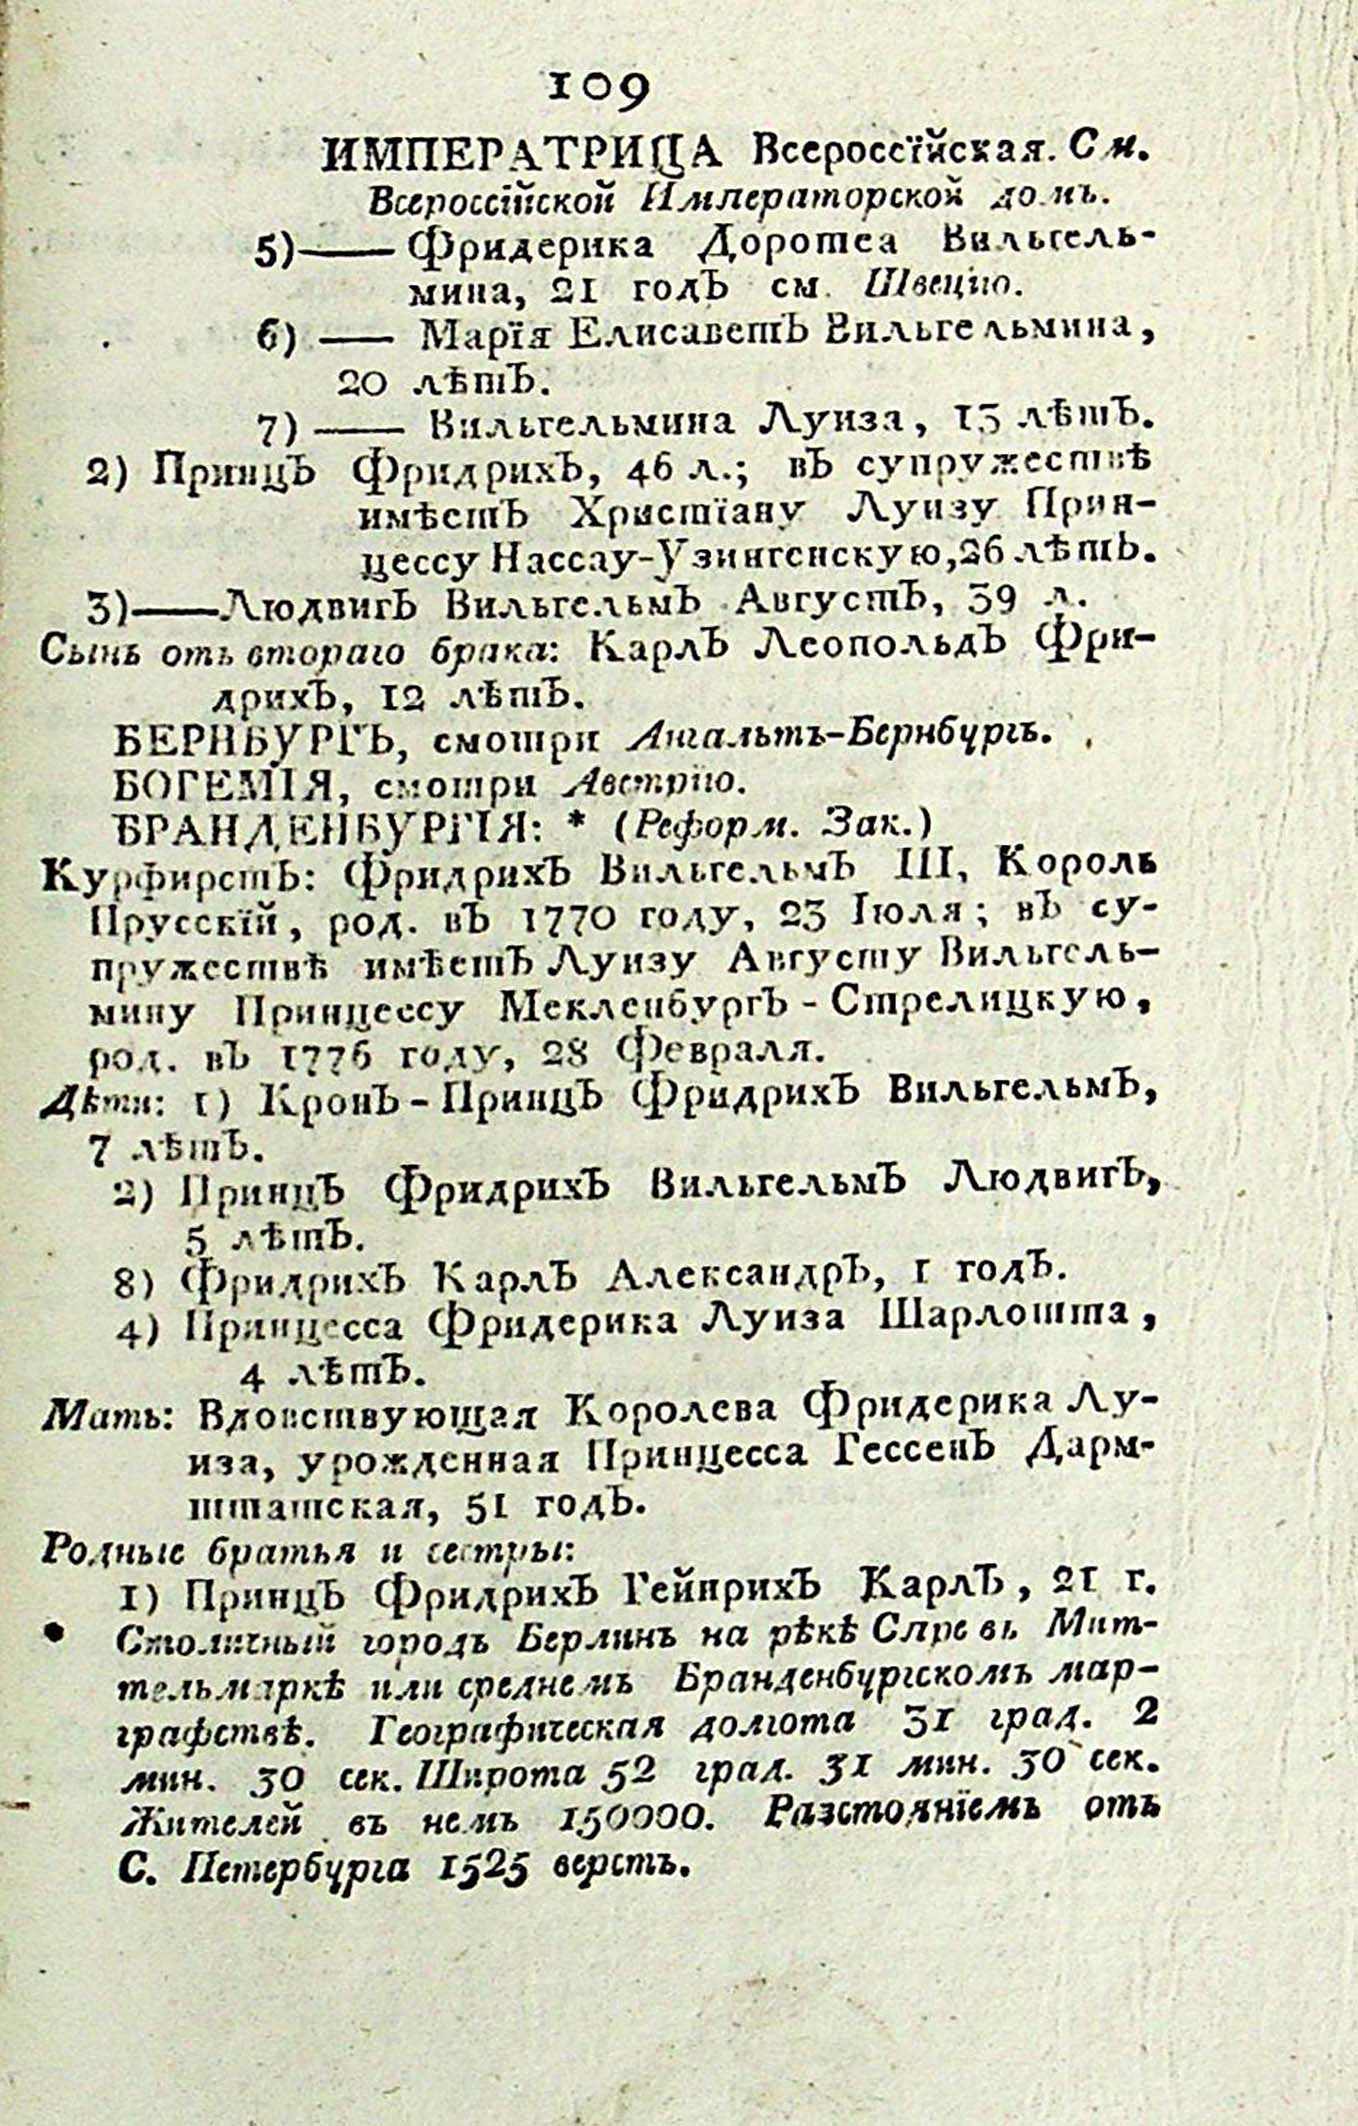 109
ИМПЕРАТРИЦА Всероссїйская. См.
Всероссїйской Императорской домъ.
5)—— Фридерика Доротеа Вильгель-
мина, 21 годЪ см. Швецїю.
6) —— Марїя ЕлисаветЪ Вильгельмина,
20 лѣтЪ.
7) —— Вильгельмина Луиза, 13 лѣтЪ.
2) ПринцЪ ФридрихЪ, 46 л.; вЪ супружествѣ
имѣетЪ Христїану Луизу Прин-
цессу Нассау-Узингенскую, 26 лѣтЪ.
3)——ЛюдвигЪ ВильгельмЪ АвгустЪ, 39 л.
Сынъ отъ втораго брака: КарлЪ ЛеопольдЪ Фри-
дрихЪ, 12 лѣтЪ.
БЕРНБУРГЪ, смотри Ангальтъ-Бернбургъ.
БОГЕМІЯ, смотри Австрїю.
БРАНДЕНБУРГІЯ: * (Реформ. Зак.)
КурфирстЪ: ФридрихЪ ВильгельмЪ III, Король
Прусскїй, род. вЪ 1770 году, 23 Іюля; вЪ су-
пружествѣ имѣетЪ Луизу Августу Вильгель-
мину Принцессу МекленбургЪ - Стрелицкую,
род. вЪ 1776 году, 28 Февраля.
Дѣти: 1) КронЪ - ПринцЪ ФридрихЪ ВильгельмЪ,
7 лѣтЪ.
2) ПринцЪ ФридрихЪ ВильгельмЪ ЛюдвигЪ,
5 лѣтЪ.
8) ФридрихЪ КарлЪ АлександрЪ, 1 годЪ.
4) Принцесса Фридерика Луиза Шарлотта,
4 лѣтЪ.
Мать: Вдовствующая Королева Фридерика Лу-
иза, урожденная Принцесса ГессенЪ Дарм-
штатская, 51 годЪ.
Родные братья и сестры:
1) ПринцЪ ФридрихЪ ГейнрихЪ КарлЪ, 21 г.
* Столичный городъ Берлинъ на рѣкѣ Спре въ Мит-
тельмаркѣ или среднемъ Бранденбургскомъ мар-
графствѣ. Географическая долгота 31 град. 2
мин. 30 сек. Широта 52 град. 31 мин. 30 сек.
Жителей въ немъ 150000. Разстоянїемъ отъ
С. Петербурга 1525 верстъ.